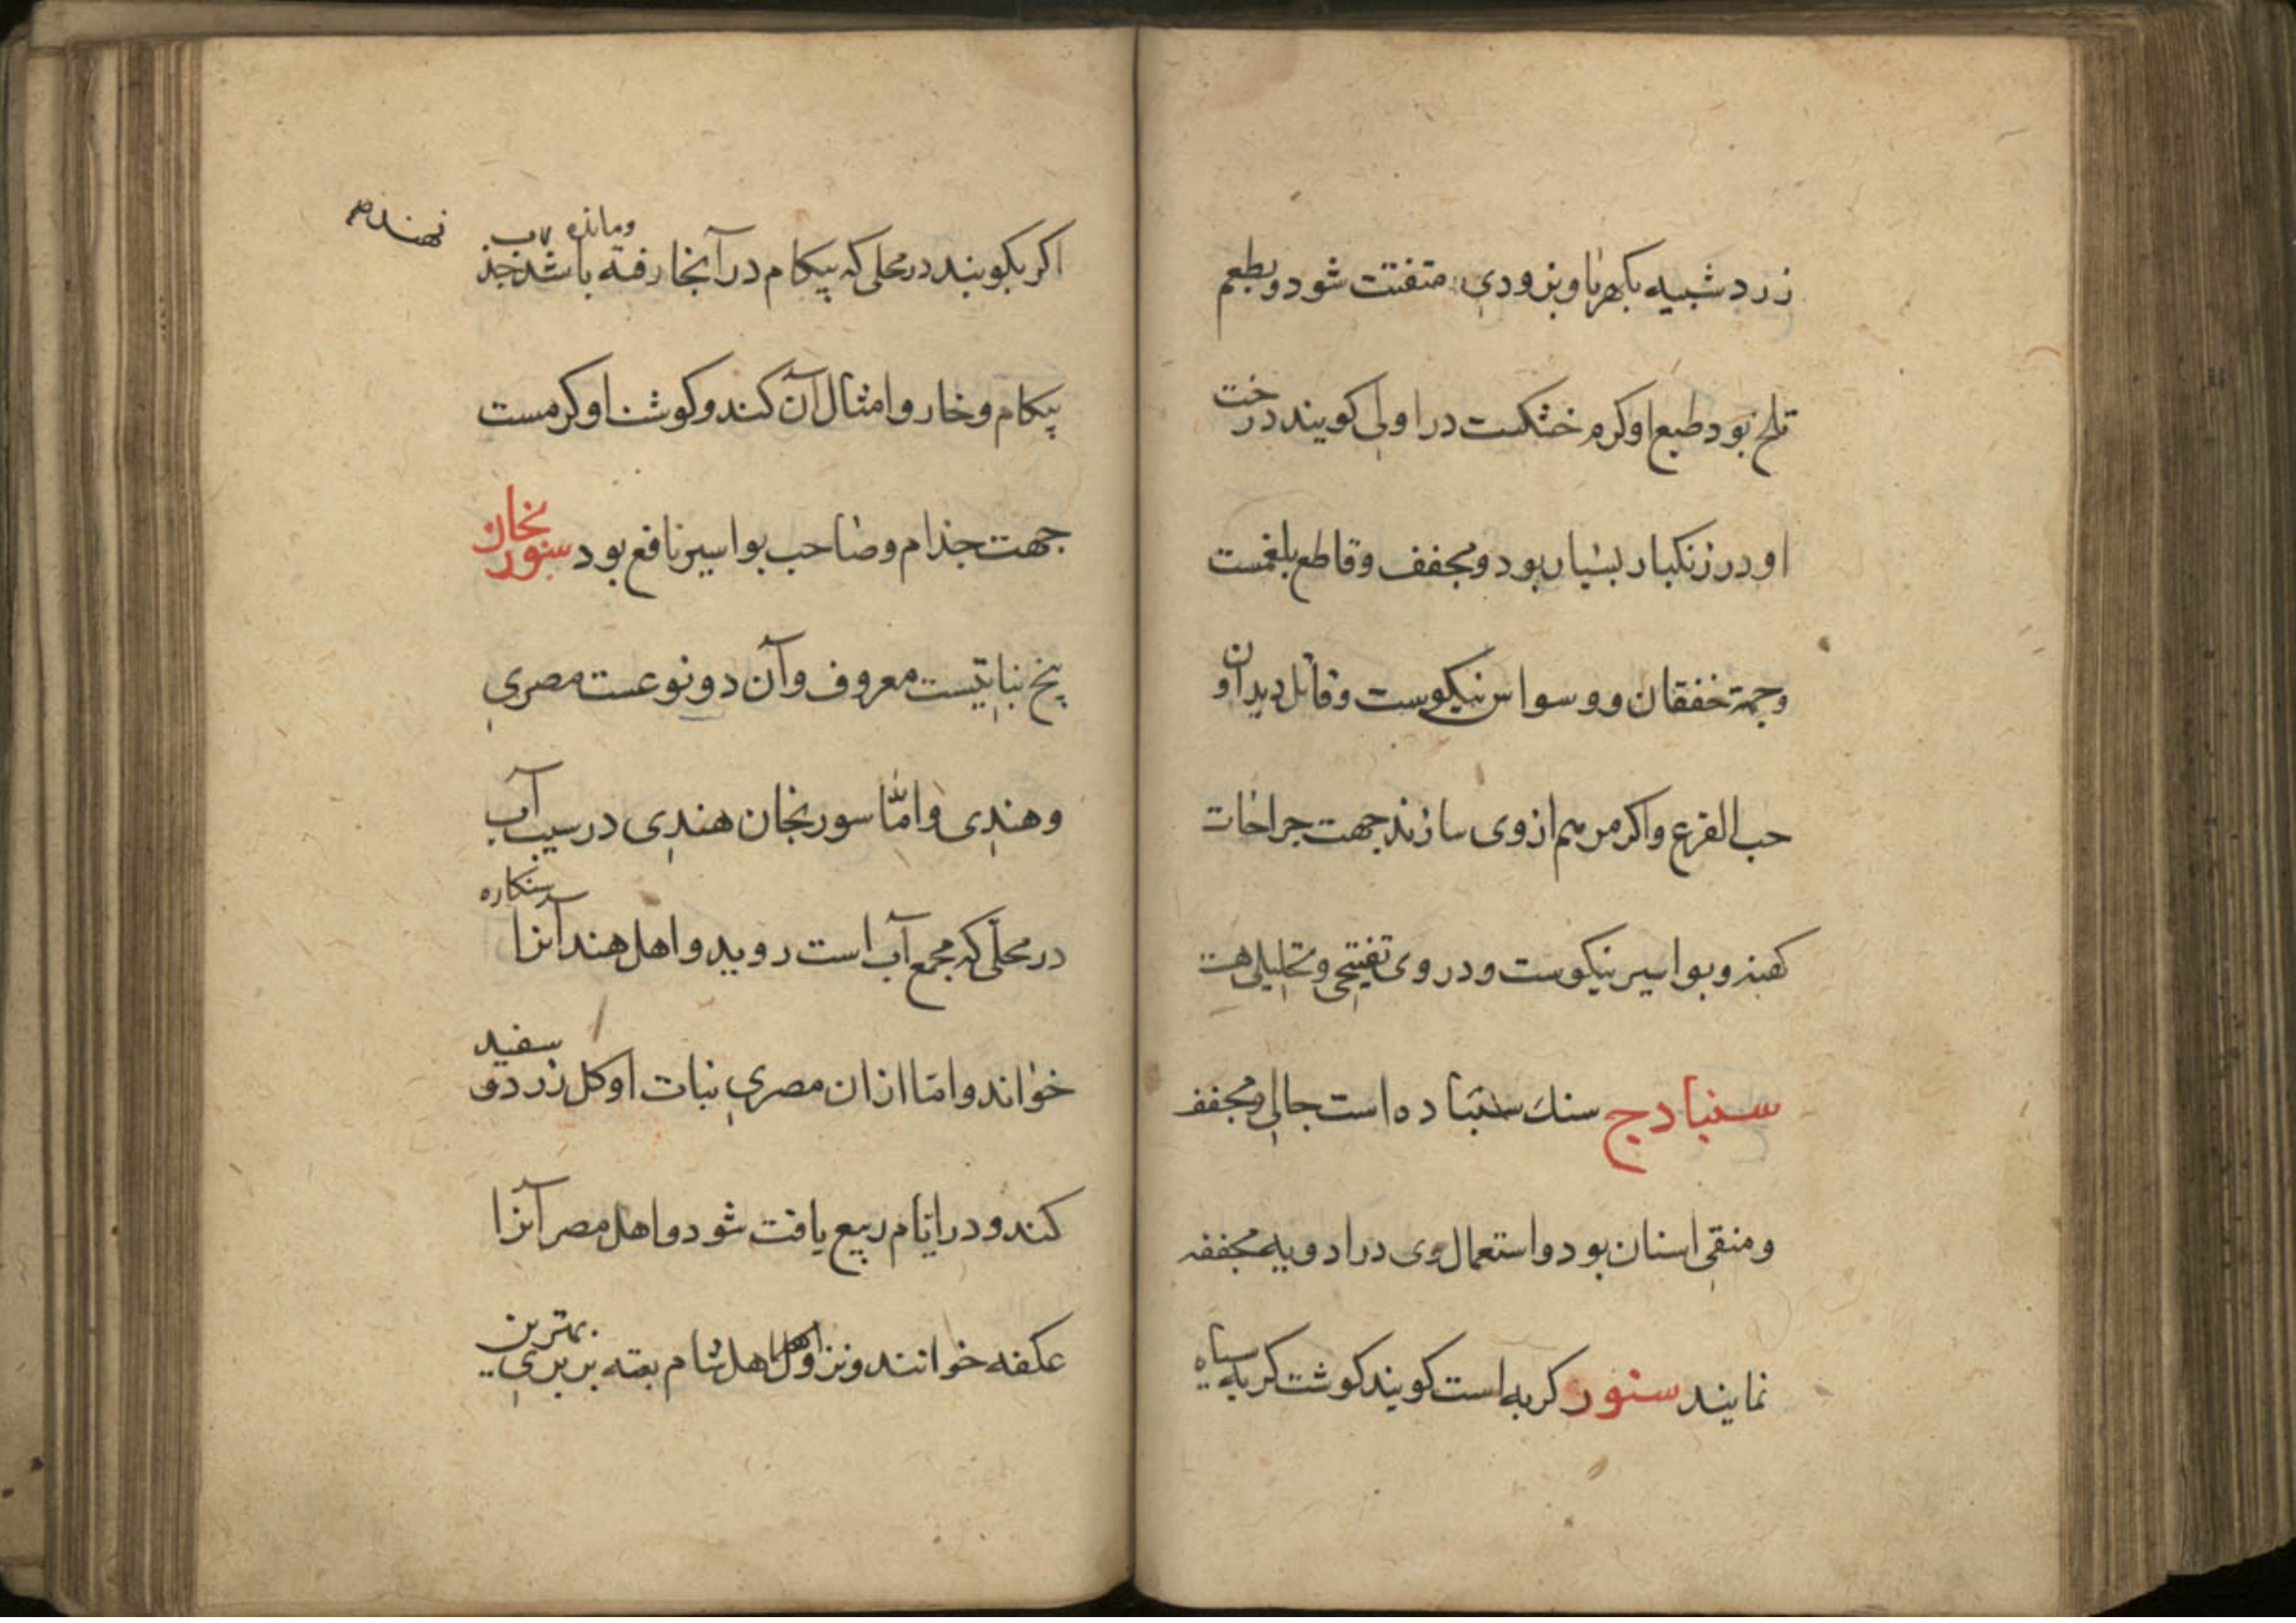 زرد شبیه بکهربا و بزودی متفتت شود و بطعم
تلخ بود طبع او کرم خشکست در اولی کویند درخت
او در زنکبار بسیار بود و مجفف و قاطع بلغمست
و جهة خفقان و وسواس نیکوست و قاتل دیدان و
حب القرع و اکر مرهم از وی سازند جهت جراحات
کهنه و بواسیر نیکوست و در وی تفتیحی و تحلیلی هست
سنبادج سنك سنباده است جالی و مجفف
و منقی اسنان بود و استعمال وی در ادویه مجففه
نمایند سنور کربه است کویند کوشت کربه سیاه
اکر بکوبند در محلی که پیکام در آنجا رفته باشد و مانده جذب
نهند
پیکام و خار و امثال آن کند و کوشت او کرمست
جهت جذام و صاحب بواسیر نافع بود سورنجان
بیخ نباتیست معروف و آن دو نوعست مصری
و هندی و امّا سورنجان هندی در سیب آب
در محلّی که مجمع آب است روید و اهل هند آنرا سنکاره
خوانند و امّا ازان مصری نبات او کل زرد و سفید
کند و در ایّام ربیع یافت شود و اهل مصر آنرا
عکفه خوانند و نزد اهل شام بعته بربری بهترین